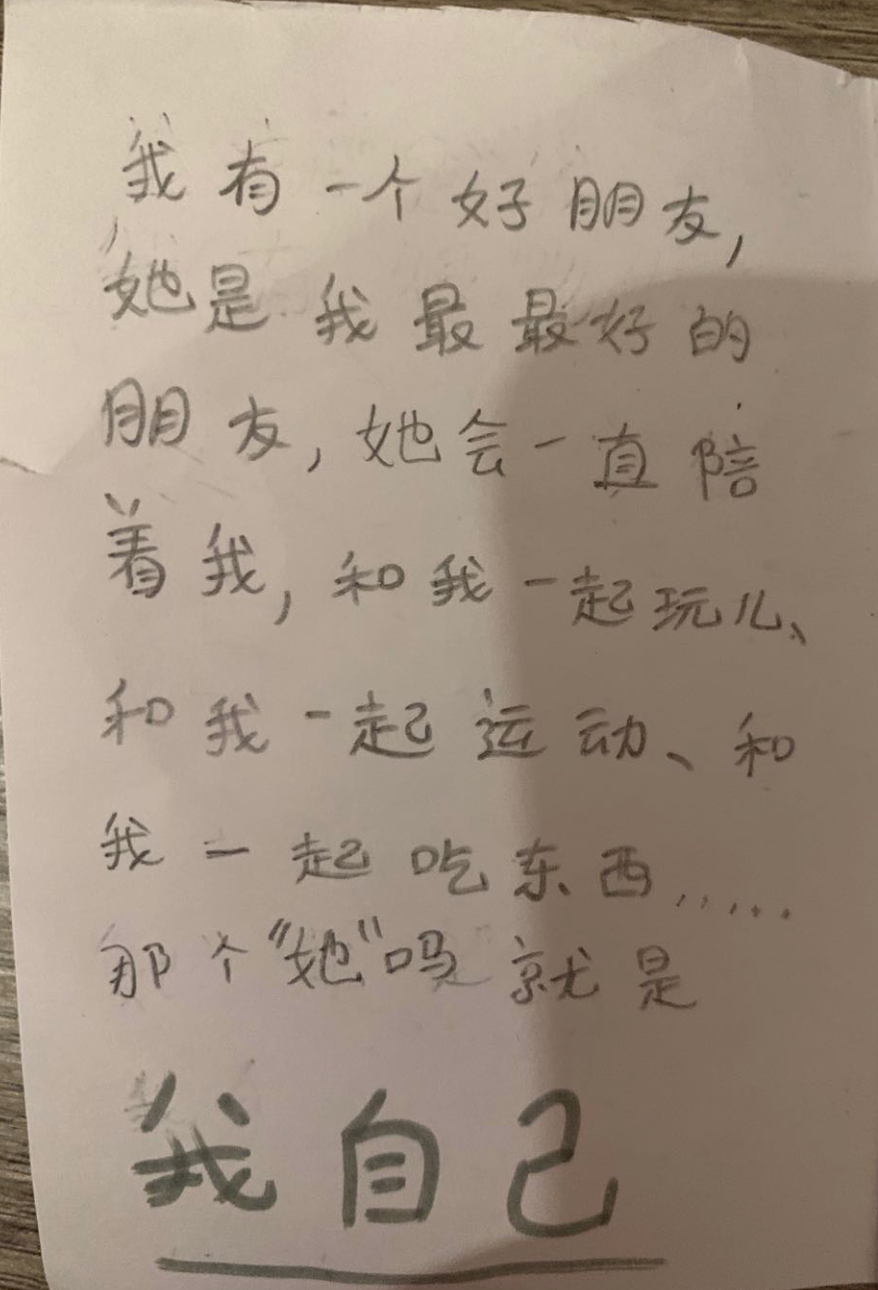 我有一个好朋友，
她是我最最好的
朋友，她会一直陪
着我，和我一起玩儿、
和我一起运动、和
我一起吃东西……
那个“她”吗就是
我自己